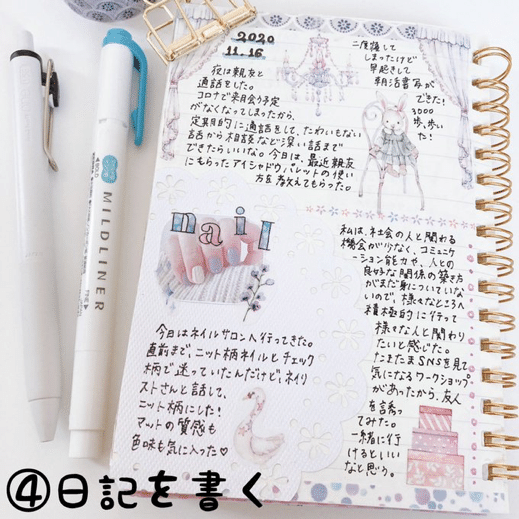 2020
11.16
夜は親友と
通話をした。
コロナで来月会う予定
がなくなってしまったから、
定期的に通話をして、たわいもない
話から相談など深い話まで
できたらいいな。今日は、最近親友
にもらったアイシャドウパレットの使い
方を教えてもらった。
二度寝して
しまったけど
早起きして
朝活書写が
できた!
3000
歩、歩い
た!
nail
今日はネイルサロンへ行ってきた。
直前まで、ニット柄ネイルとチェック
柄で迷っていたんだけど、ネイリ
ストさんと話して、
ニット柄にした!
マットの質感も
色味も気に入った♡
私は、社会の人と関わる
機会が少なく、コミュニケ
ーション能力や、人との
良好な関係の築き方
がまだ身についていな
いので、様々なところへ
積極的に行って
様々な人と関わり
たいと感じた。
たまたまSNSを見て
気になるワークショップ
があったから、友人
を誘っ
てみた。
一緒に行
けるといい
なと思う。
MILDLINER
④日記を書く